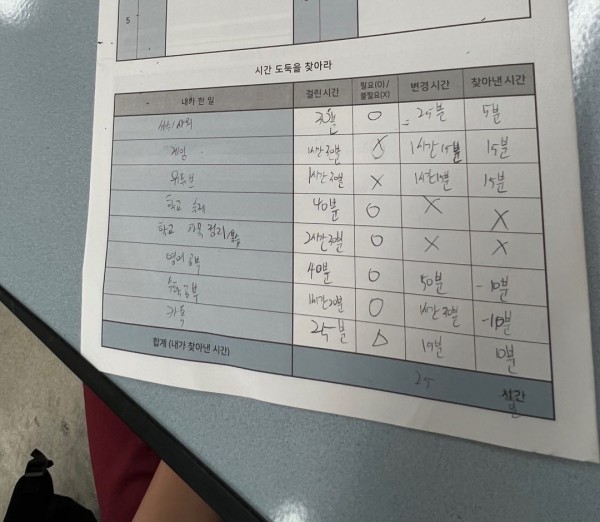 5
시간 도둑을 찾아라
내가 한 일 걸린 시간 필요(O) / 불필요(X) 변경 시간 찾아낸 시간
30분 O 25분 5분
게임 1시간 30분 X 1시간 15분 15분
유튜브 1시간 30분 X 1시간 15분 15분
학교 숙제 40분 O X X
학교 과목 정리/복습 2시간 30분 O X X
영어 공부 40분 O 50분 -10분
수학 공부 1시간 20분 O 1시간 30분 -10분
카톡 25분 △ 15분 10분
합계 (내가 찾아낸 시간) 25 시간
분